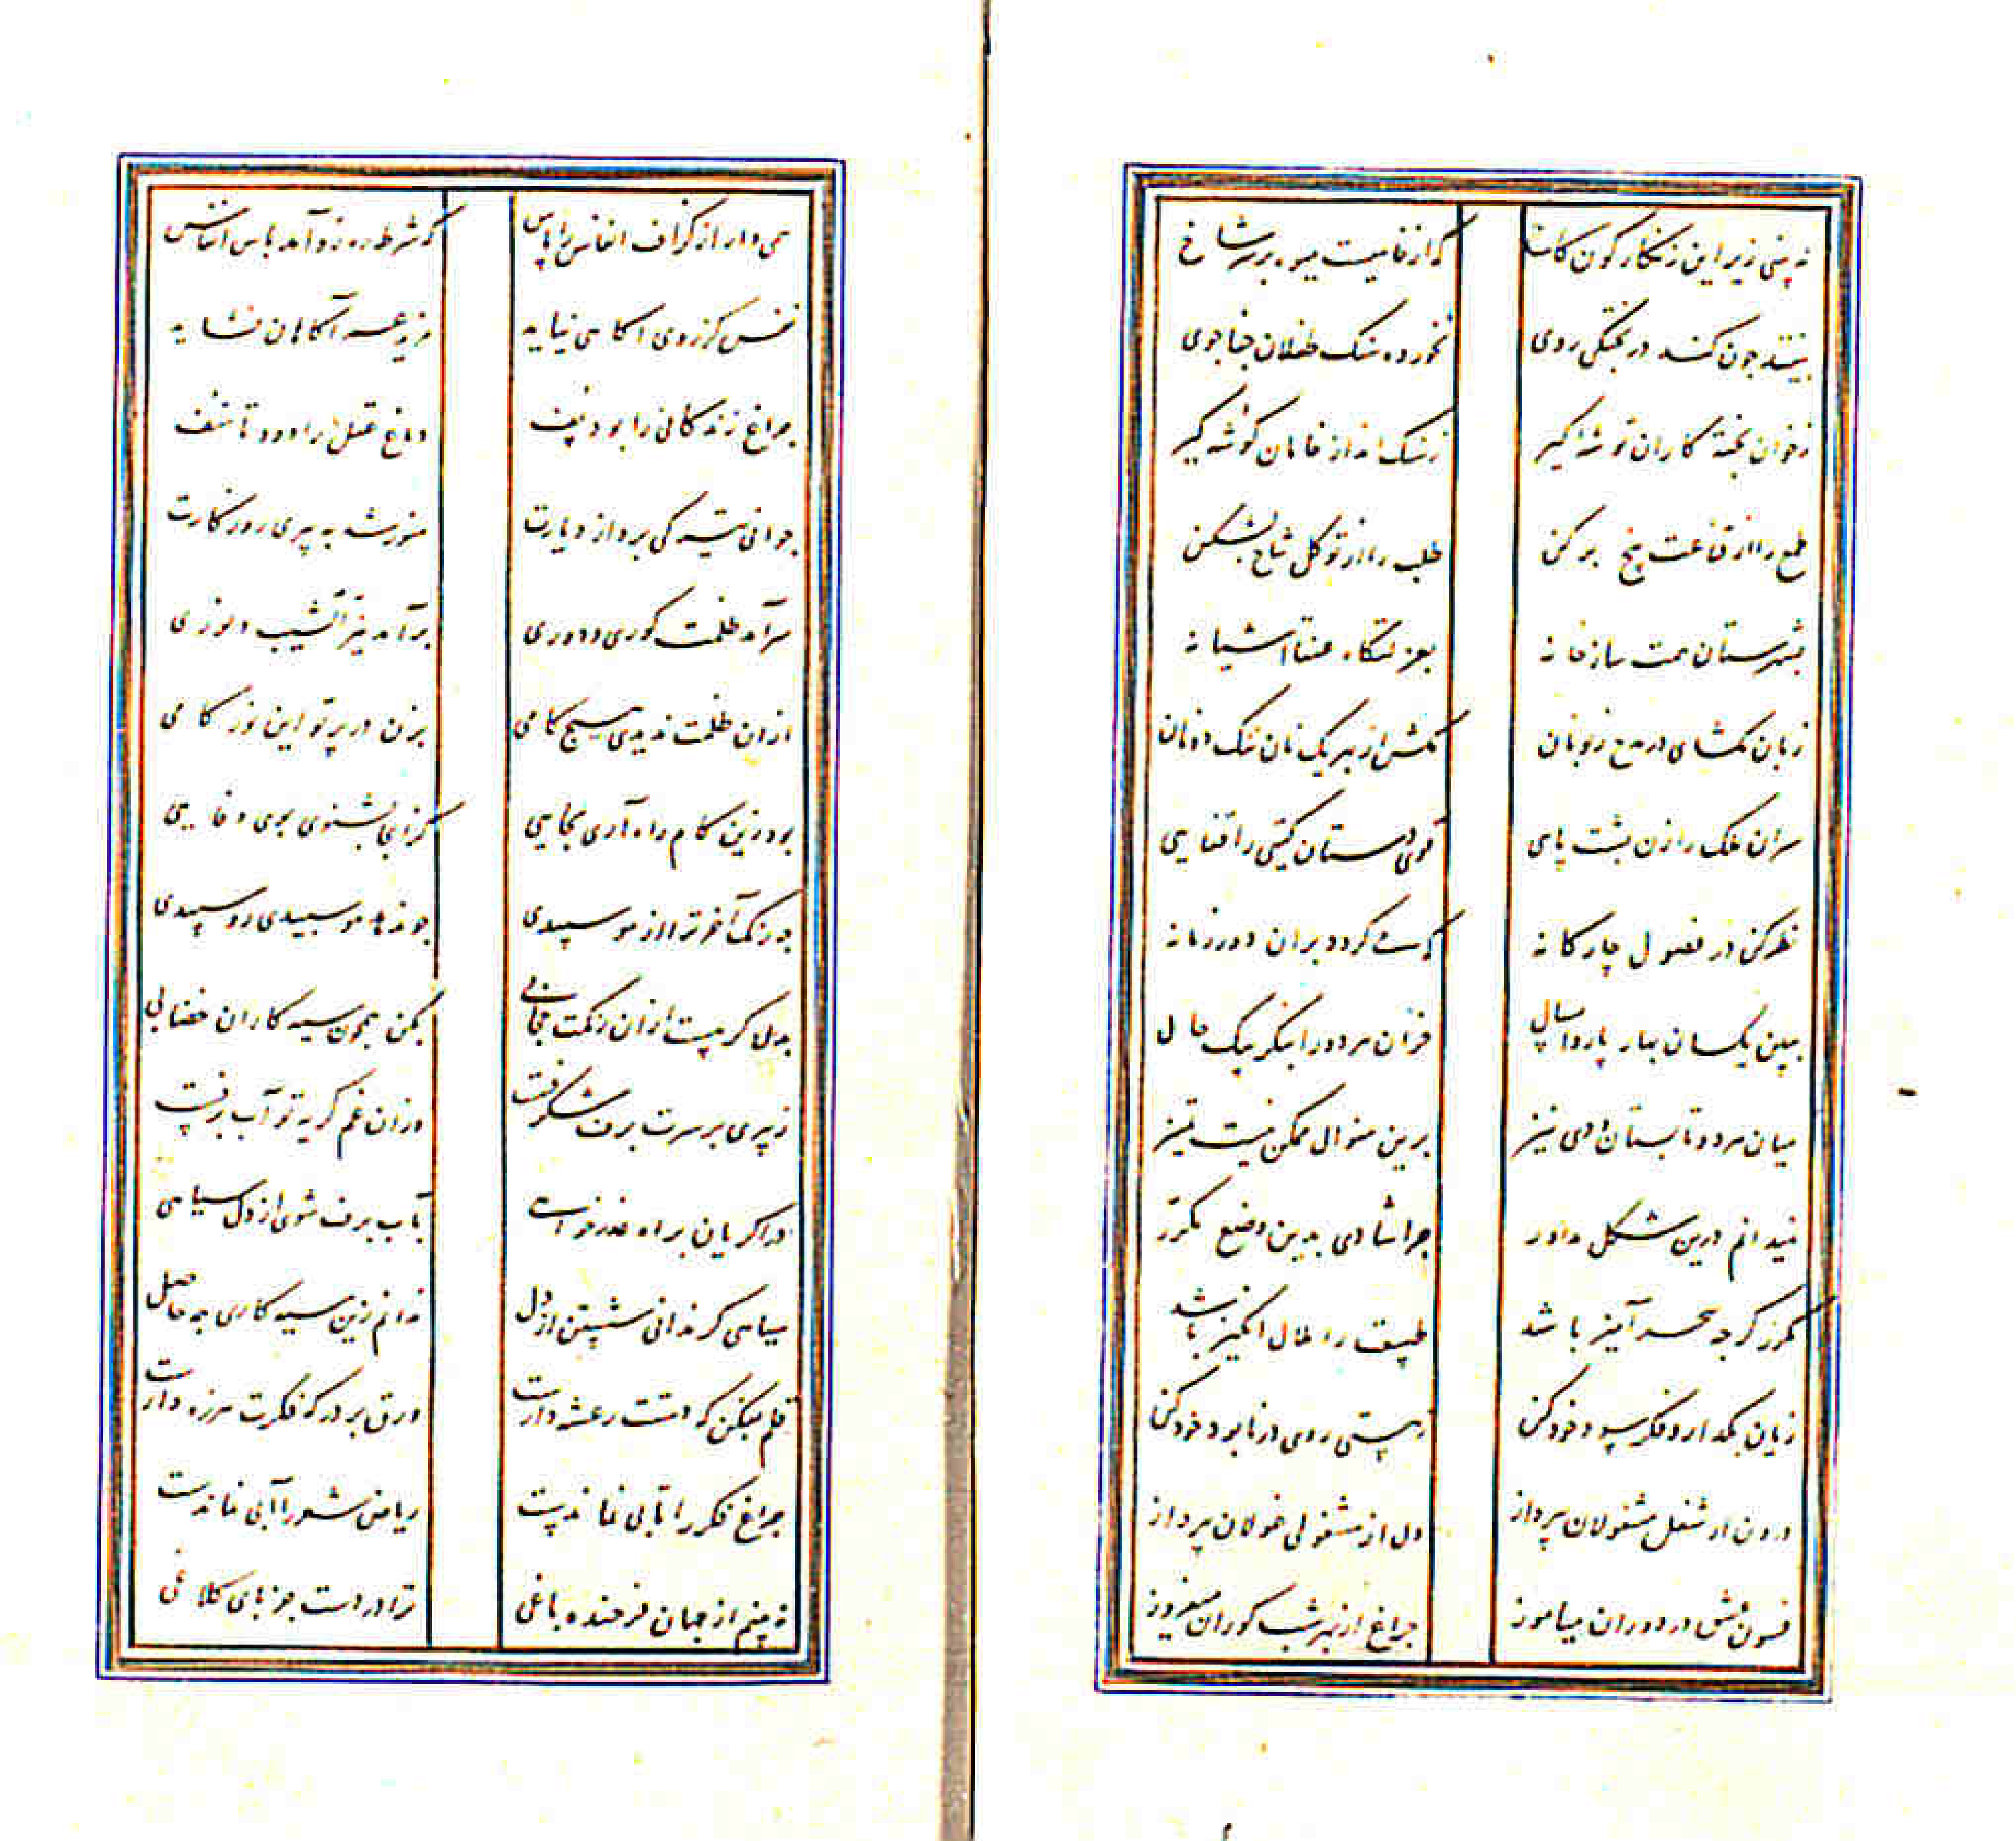 نه بینی زیر این زنکارکون کاخ که از خامیت میوه بر سر شاخ
بیفتد جون کند در پختکی روی نخورده سنک طفلان جفا جوی
ز خوان پخته کاران توشه ا کیر ز سنک انداز خامان کوشه کیر
طمع را از قناعت بیخ بر کن طلب را از توکل شاخ بشکن
بشهرستان همت ساز خانه بعزلتگاه عنقا آشیانه
زبان مکشای در مدح زبونان مکش از بهر یک نان ننک دونان
سران ملک را زن پشت پای قوی دستان کیتی را قفایی
نظر کن در فصول چارکانه که می کردد بران دور زمانه
ببین یکسان بهار پار و امسال خزان هر دو را بنکر بیک حال
میان هر دو تابستان و دی نیز برین منوال ممکن نیست تمییز
نمیدانم درین شکل مدور چرا شادی بدین وضع مکرر
مکرر کرجه سحر آمیز باشد طبیعت را ملال انکیز باشد
زیان بکذار و فکر سود خود کن ز هستی روی در نابود خود کن
درون از شغل مشغولان بپرداز دل از مشغولی غولان بپرداز
فسون عشق در دوران میاموز جراغ از بهر شب کوران میفروز
همی دار از کزاف انفاس را پاس که شرط رهرو آمد پاس انفاس
نفس کز روی اکاهی نیاید مزید عمر آکاهان نشاید
جراغ زندکانی را بود پف دماغ عقل را دود تاسف
جوانی تیرکی برد از دیارت منور شد به پیری روزکارت
سرآمد ظلمت کوری و دوری برآمد نیر الشیب نوری
ازان ظلمت ندیدی هیچ کامی بزن در پرتو این نور کامی
بود زین کام راه آری بجایی کز انجا بشنوی بوی وفایی
جه رنک آخر ترا از مو سپیدی جو ندهد مو سپیدی رو سپیدی
بدل کر هست ازان رنکت حجابی بکن همچون سیه کاران خضابی
ز پیری بر سرت برف شکرفت وزان غم کریه تو آب برفت
درا کریان براه عذر خواهی بآب برف شوی از دل سیاهی
سیاهی کر ندانی شستن از دل ندانم زین سیه کاری جه حاصل
قلم بفکن که دستت رعشه دارست ورق بر در که فکرت هرزه دارست
جراغ فکر را تابی نماندست ریاض شعر را آبی نماندست
نه بینم از جهان فرخنده باغی ترا در دست جز پای کلاغی